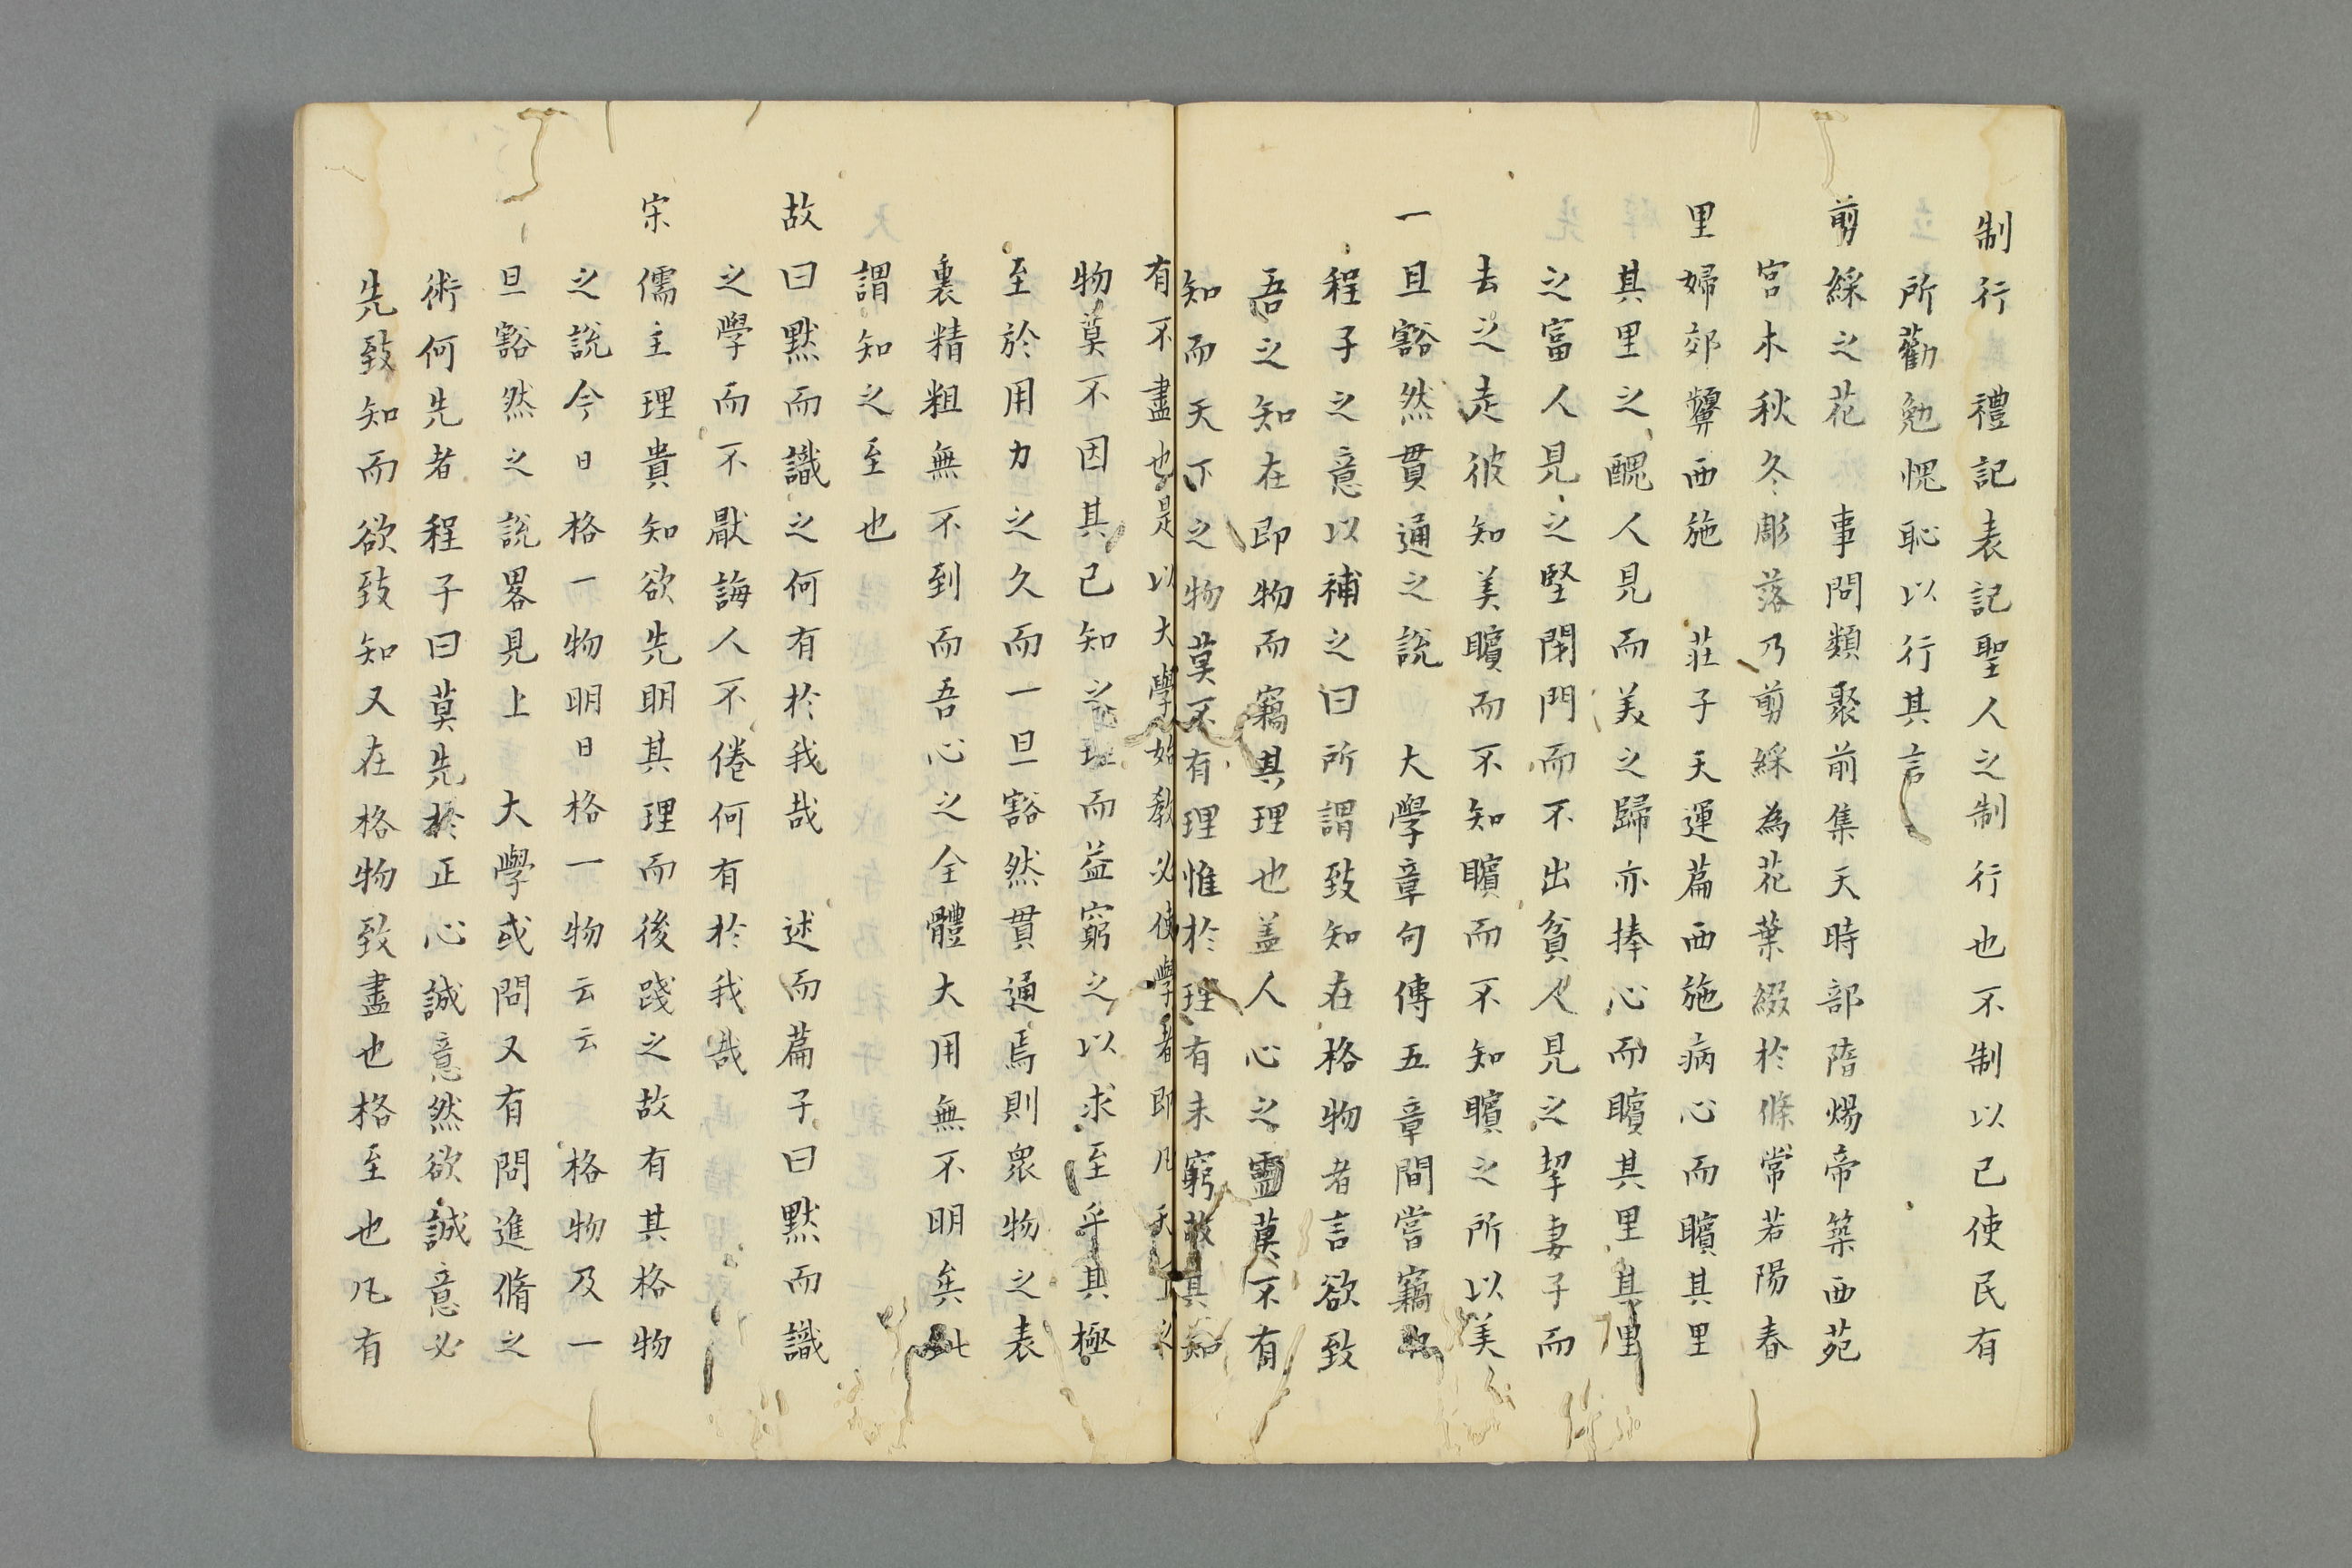 制行　禮記表記聖人之制行也不制以己使民有
所勸勉愧恥以行其言
剪綵之花　事問類聚前集天時部隋煬帝築西苑
宮木秋冬彫落乃剪綵為花葉綴於條常若陽春
里婦郊顰西施　莊子天運篇西施病心而矉其里
其里之醜人見而美之歸亦捧心而矉其里其里
之富人見之堅閉門而不出貧人見之挈妻子而
去之走彼知美矉而不知矉而不知矉之所以美
一旦豁然貫通之說　大學章句傳五章間嘗竊取
程子之意以補之曰所謂致知在格物者言欲致
吾之知在即物而窮其理也盖人心之靈莫不有
知而天下之物莫不有理惟於理有未窮故其知
有不盡也是以大學始教必使學者即凡天下之
物莫不因其已知之理而益窮之以求至乎其極
至於用力之久而一旦豁然貫通焉則衆物之表
裏精粗無不到而吾心之全體大用無不明矣此
謂知之至也
故曰默而識之何有於我哉　述而篇子曰默而識
之學而不厭誨人不倦何有於我哉
宋儒主理貴知欲先明其理而後踐之故有其格物
之說今日格一物明日格一物云云　格物及一
旦豁然之說畧見上　大學或問又有問進脩之
術何先者程子曰莫先於正心誠意然欲誠意必
先致知而欲致知又在格物致盡也格至也凡有